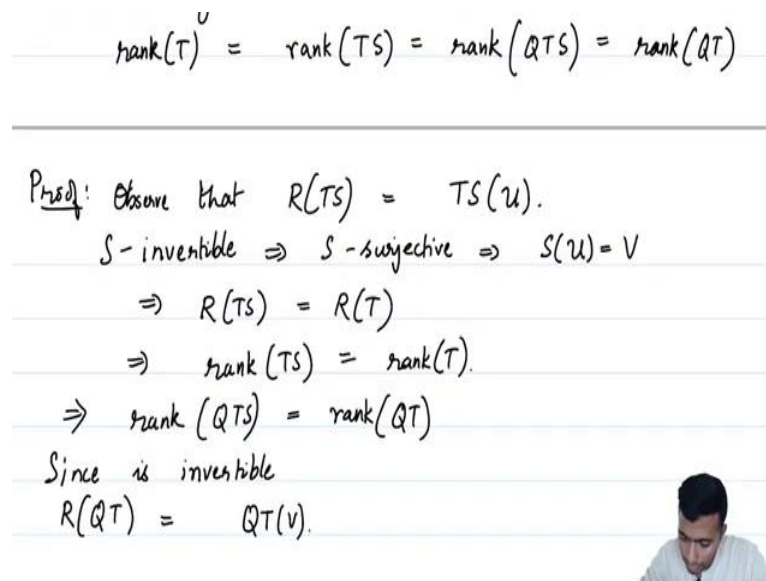 rank(T) = rank(TS) = rank(QTS) = rank(QT)
Proof: Observe that R(TS) = TS(U).
S-invertible ⇒ S-surjective ⇒ S(U) = V
⇒ R(TS) = R(T)
⇒ rank(TS) = rank(T).
⇒ rank(QTS) = rank(QT)
Since is invertible
R(QT) = QT(V).